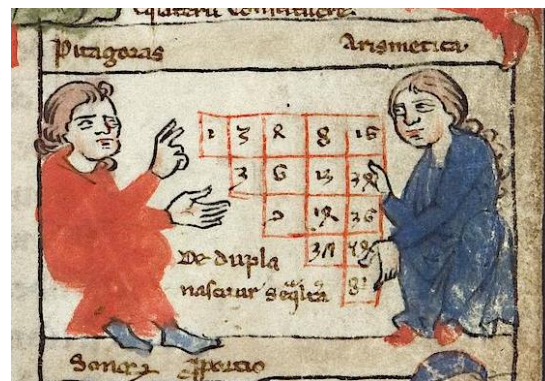 constituere.
Pitagoras Arismetica
1 2 4 8 16
3 6 12 24
9 18 36
27 54
De dupla
nascitur
81
Sonoꝝ ꝓportio